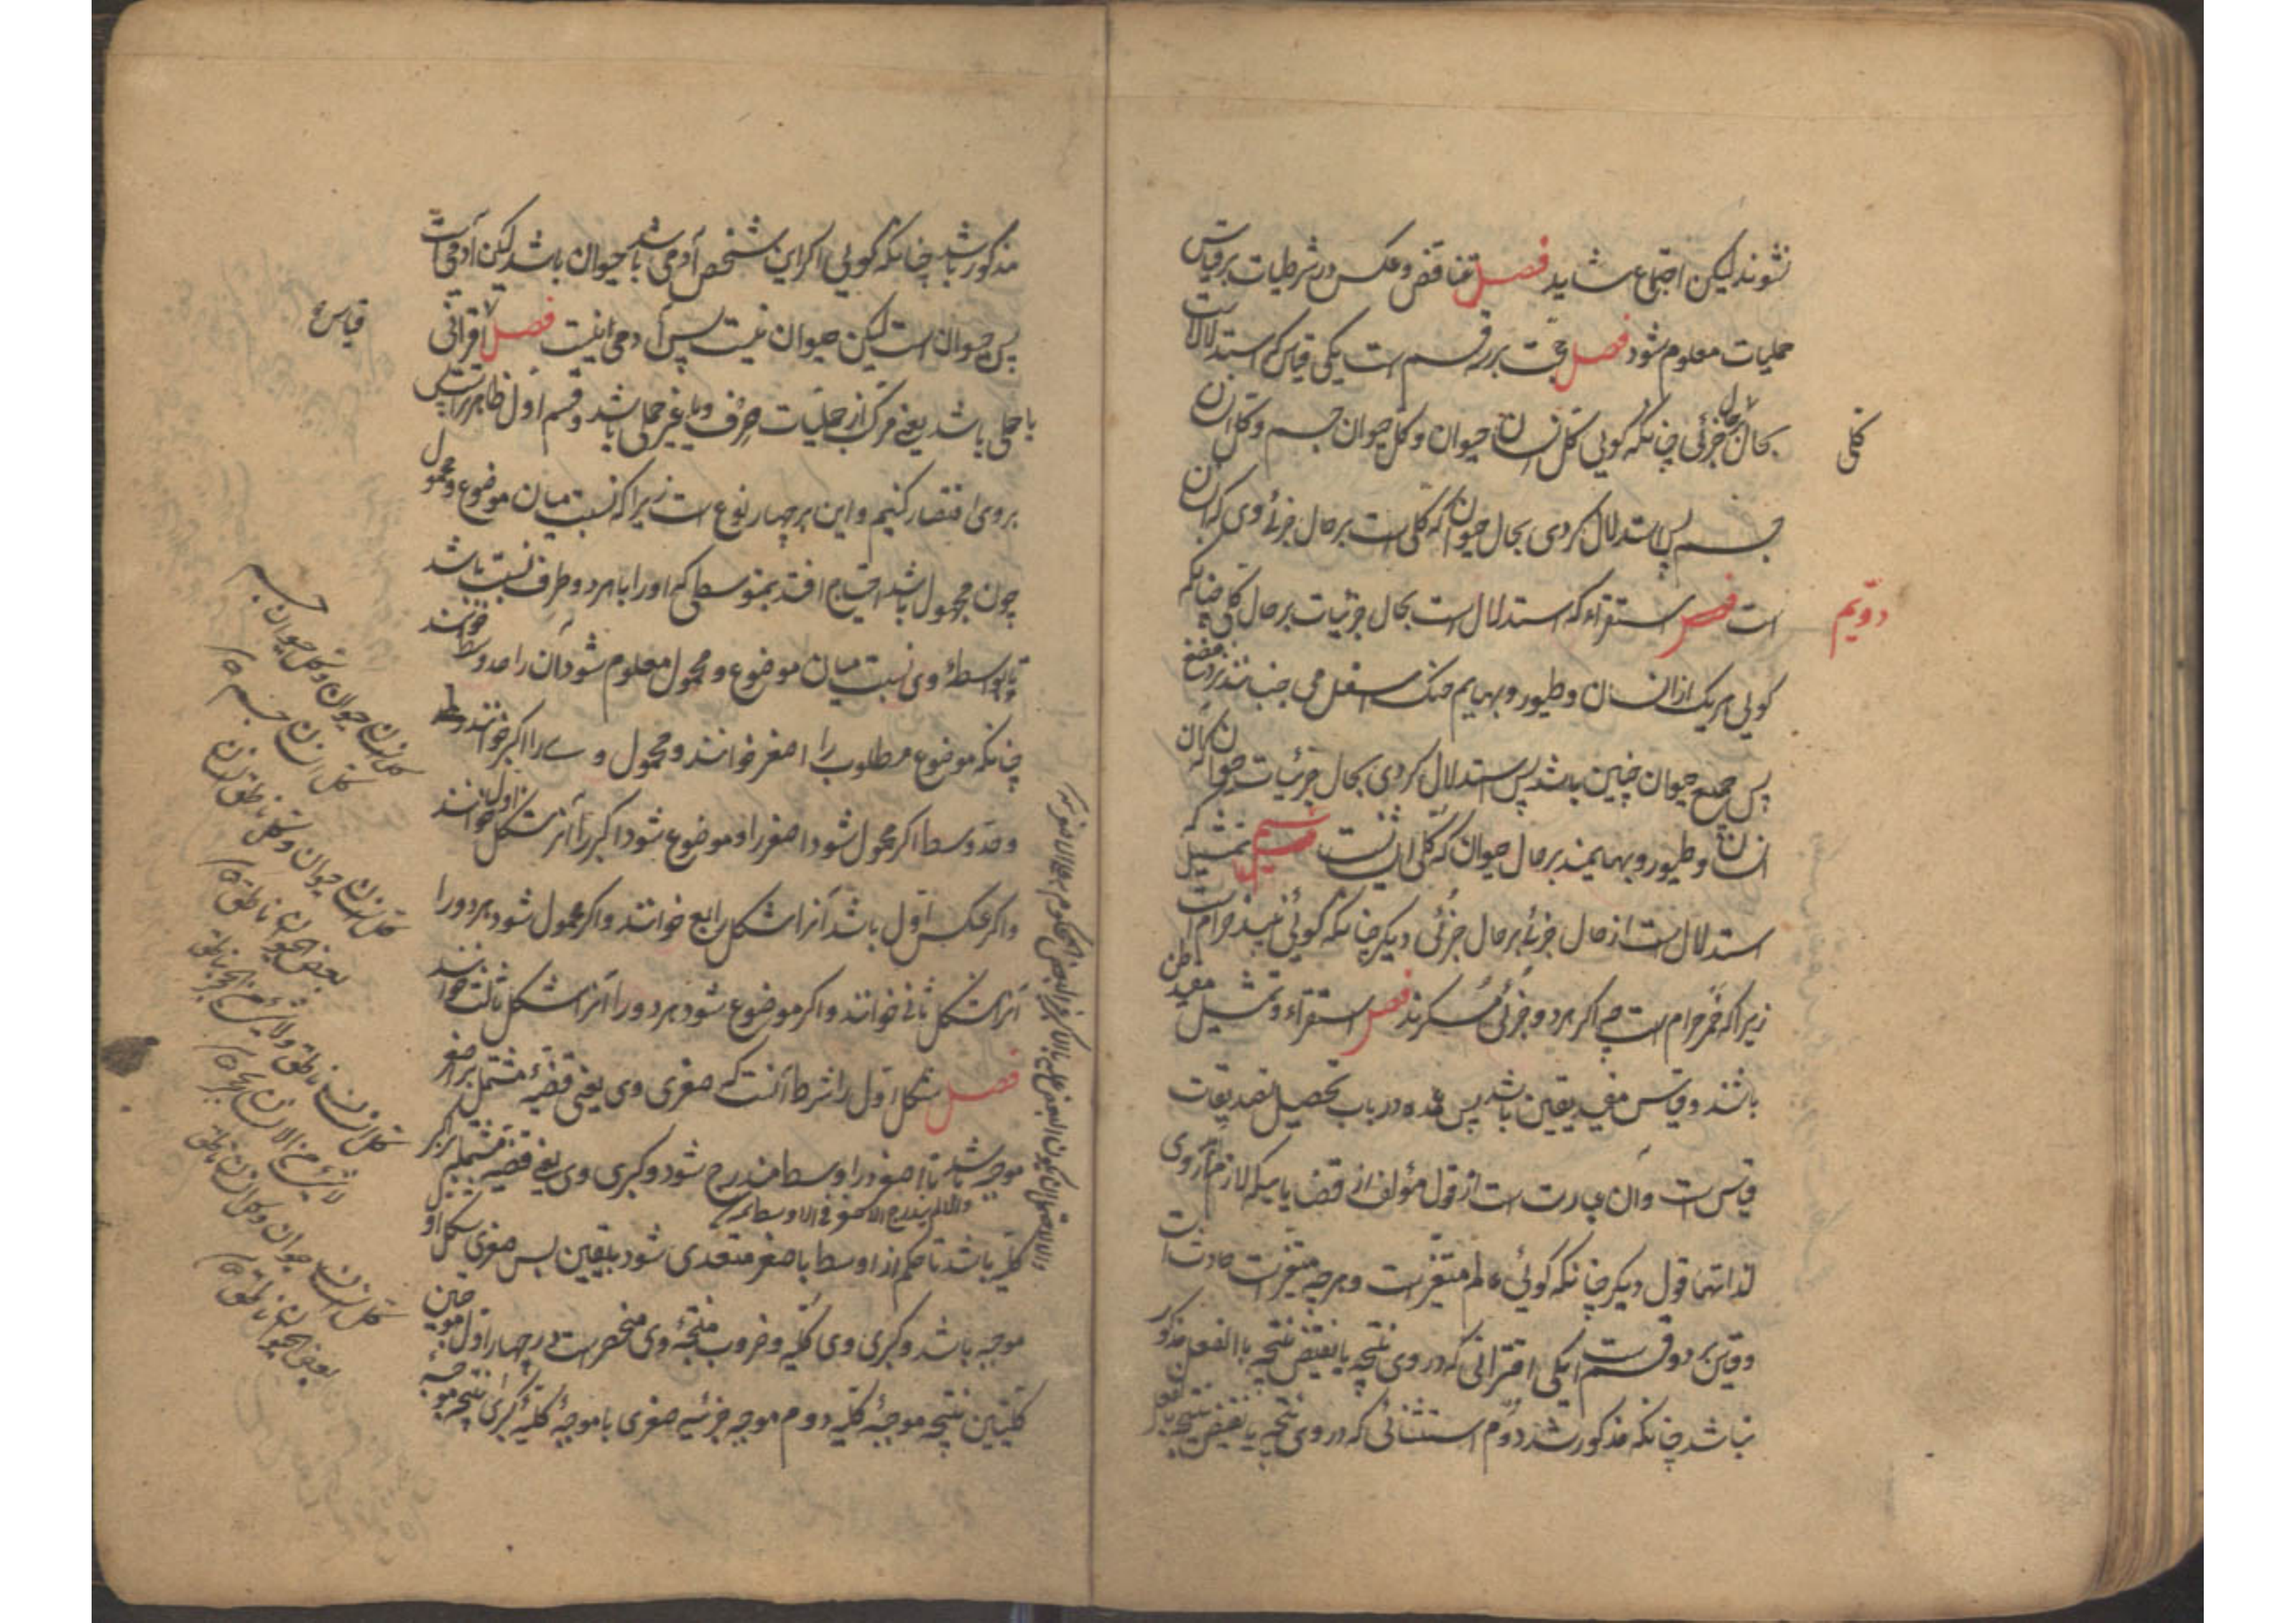 نشوند لیکن اجتماع شاید فصل تناقض و عکس در شرطیات بر قیاس
حملیات معلوم شود فصل حجت بر سه قسم است یکی قیاس که استدلالست
بحال کلی بر حال جزئی چنانکه گویی کل انسان حیوان و کل حیوان جسم و کل انسان
جسم پس استدلال کردی بحال حیوان که کلی است بر حال جزئی وی که انسان
است فصل دویم استقراء که استدلال است بحال جزئیات بر حال کلی چنانکه
گویی هر یک از انسان و طیور و بهایم فنک اسفل می جنبانند نزد مضغ
پس جمیع حیوان چنین باشد پس استدلال کردی بحال جزئیات حیوان که آن
انسان و طیور و بهایمند بر حال حیوان که کلی ایشانست قسم تمثیل که
استدلال است از حال جزئی بر حال جزئی دیگر چنانکه گوئی نبیذ حرام است
زیرا که خمر حرام است چه اگر هر دو جزئی مسکرند فصل استقراء و تمثیل مفید ظن
باشند و قیاس مفید یقین باشد پس عمده در باب تحصیل تصدیقات
قیاس است و آن عبارت است از قول مؤلف از قضایا که لازم آید از وی
لذاتها قول دیگر چنانکه گوئی عالم متغیر است و هر چه متغیر است حادث است
و قیاس بر دو قسم است یکی اقترانی که در وی نتیجه یا نقیض نتیجه بالفعل مذکور
نباشد چنانکه مذکور شد دوم استثنائی که در وی نتیجه یا نقیض نتیجه بالفعل
مذکور باشد چنانکه گویی اگر این شخص آدمی باشد حیوان باشد لیکن آدمی است
پس حیوان است لیکن حیوان نیست پس آدمی نیست فصل قیاس اقترانی
یا حملی باشد یعنی مرکب از حملیات صرف و یا غیر حملی باشد و قسم اول ظاهرتر است پس
بر وی اقتصار کنیم و این بر چهار نوع است زیرا که نسبت میان موضوع و محمول
چون مجهول باشد احتیاج افتد بمتوسطی که او را با هر دو طرف نسبت باشد
تا بواسطهٔ وی نسبت میان موضوع و محمول معلوم شود آن را حد وسط خوانند
چنانکه موضوع مطلوب را اصغر خوانند و محمول وے را اکبر خوانند
و حد وسط اگر محمول شود اصغر را و موضوع شود اکبر را آنرا شکل اول خوانند
و اگر عکس اول باشد آنرا شکل رابع خوانند و اگر محمول شود هر دو را
آنرا شکل ثانی خوانند و اگر موضوع شود هر دو را آنرا شکل ثالث خوانند
فصل شکل اول را شرط آنست که صغری وی یعنی قضیهٔ مشتمل بر اصغر
موجبه باشد تا اصغر در اوسط مندرج شود و کبری وی یعنی قضیه مشتمله بر اکبر
کلیه باشد تا حکم از اوسط باصغر متعدی شود بیقین پس صغری شکل اول
موجبه باشد و کبری وی کلیه و ضروب منتجهٔ وی منحصر است در چهار اول موجبتین
کلیتین نتیجه موجبهٔ کلیه دوم موجبه جزئیه صغری با موجبهٔ کلیه کبری نتیجه موجبه
والا لم یندرج الاصغر فی الاوسط
کل انسان حیوان و کل حیوان جسم
کل انسان جسم
کل انسان حیوان و کل ناطق
بعض الحیوان ناطق
کل انسان ناطق ولا شیء من الحجر بناطق
لا شیء من الانسان بحجر
کل انسان حیوان و کل انسان ناطق
بعض الحیوان ناطق